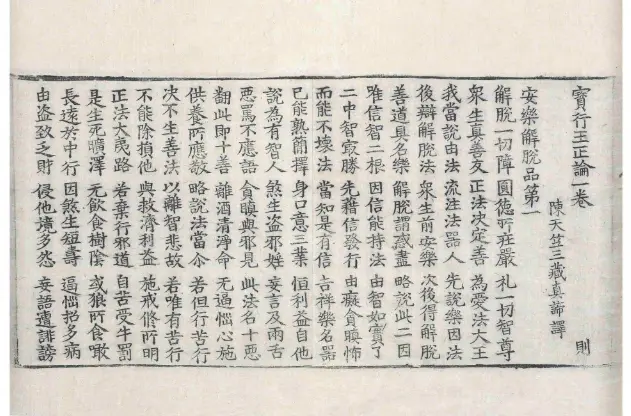 寶行王正論一卷 則
陳天竺三藏真諦譯
安樂解脫品第一
解脫一切障 圓德所莊嚴 礼一切智尊
衆生真善友 正法決定善 為愛法大王
我當說由法 流注法器人 先說樂因法
後辯解脫法 衆生前安樂 次後得解脫
善道具名樂 解脫謂惑盡 略說此二因
唯信智二根 因信能持法 由智如實了
二中智寂勝 先藉信發行 由癡貪瞋怖
而能不壞法 當知是有信 吉祥樂名器
已能熟蕳擇 身口意三業 恒利益自他
說為有智人 煞生盜邪婬 妄言及兩舌
惡罵不應語 貪瞋與邪見 此法名十惡
翻此即十善 離酒清淨命 無逼惱心施
供養所應敬 略說法當尒 若但行苦行
決不生善法 以離智悲故 若唯有苦行
不能除損他 與救濟利益 施戒修所明
正法大夷路 若棄行邪道 自苦受牛罰
是生死曠澤 無飲食樹陰 或狼所食噉
長遠於中行 因煞生短壽 逼惱招多病
由盜致乏財 侵他境多怨 妄語遭誹謗